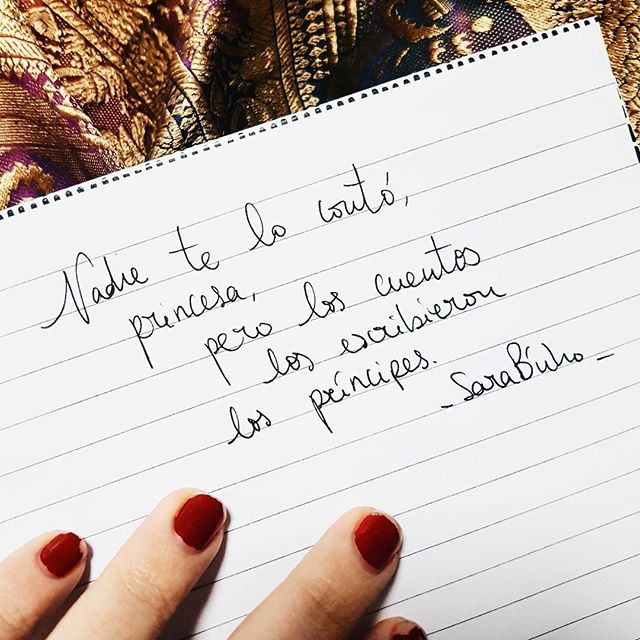 Nadie te lo contó,
princesa,
pero los cuentos
los escribieron
los príncipes.
- SaraBúho -